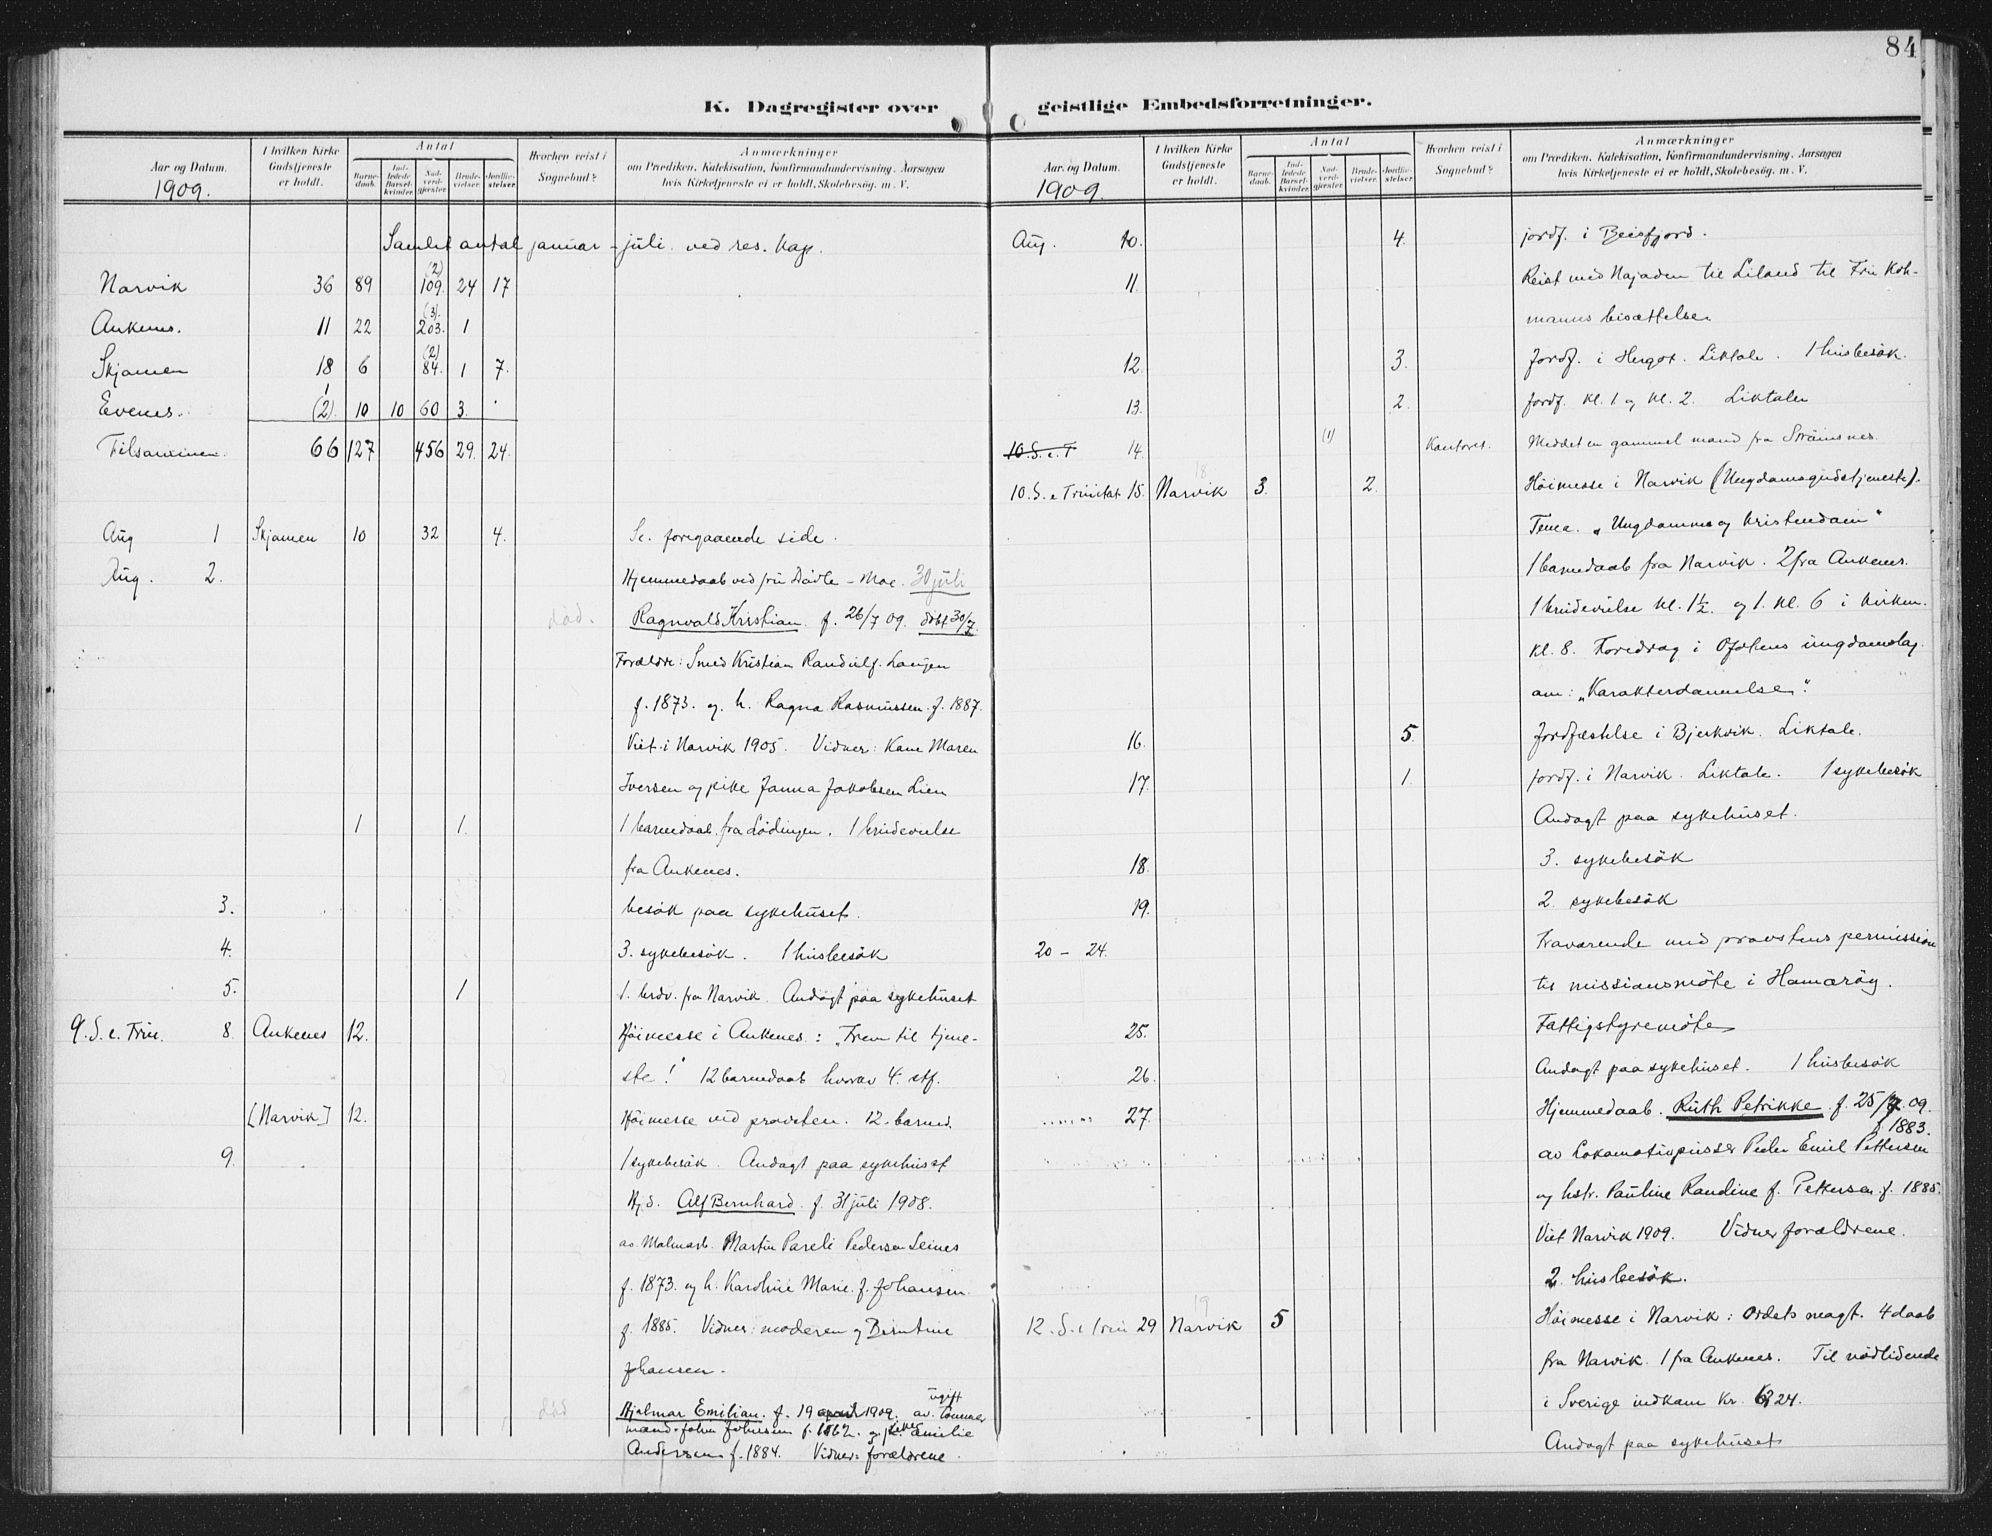 84
K. Dagregister over geistlige Embedsforretninger.
Aar og Datum.
1909.
I hvilken Kirke Gudstjeneste er holdt.
Antal
Barnedaab.
Indledede Barselkvinder.
Nadverdgjester
Brudevielser.
Jordfæstelser
Hvorhen reist i Sognebud?
Anmærkninger
om Prædiken, Katekisation, Konfirmandundervisning, Aarsagen
hvis Kirketjeneste ei er holdt, Skolebesøg, m. V.
Samlet antal januar - juli ved res. kap.
Narvik 36 89 (2) 109 24 17
Ankenes. 11 22 (3). 203. 1
Skjomen 18 6 (2) 84. 1 7.
Evenes. 1 (2) 10 10 60 3.
Tilsammen. 66 127 456 29. 24.
Aug 1 Skjomen 10 32 4. Se foregaaende side.
Aug. 2. Hjemmedaab ved fru Dødte - Moe. 30 juli
død. Ragnvald Kristian f. 26/7 09. døbt 30/7.
Forældre: Smed Kristian Randulf. Langen
f. 1873. og h. Ragna Rasmussen f. 1887.
Viet i Narvik 1905. Vidner: Kone Maren
Iversen og pike Janna Jakobsen Lien
1 1. 1 barnedaab fra Lødingen. 1 brudevielse
fra Ankenes.
3. besøk paa sykehuset.
4. 3. sykebesøk. 1 husbesøk
5. 1 1. brdv. fra Narvik. Andagt paa sykehuset
9. S. e. Trin. 8. Ankenes 12. Høimesse i Ankenes: "Frem til tjene-
ste! 12 barnedaab hvorav 4. stf.
[Narvik] 12. Høimesse ved provsten. 12. barned.
9. 1 sykebesøk. Andagt paa sykehuset
Hjd. Alf Bernhard. f. 31 juli 1908.
av Malmarb. Martin Pareli Pedersen Leines
f. 1873. og h. Karoline Marie. f. Johansen.
f. 1885. Vidner: moderen og Berntine
Johansen.
død Hjalmar Emilian. f. 19 april 1909. av ugift Tømmer
mand John Johnsen f. 1862. og pike Emilie
Andersen f. 1884. Vidner: forældrene.
Aar og Datum.
1909.
I hvilken Kirke Gudstjeneste er holdt.
Antal
Barnedaab.
Indledede Barselkvinder.
Nadverdgjester
Brudevielser.
Jordfæstelser
Hvorhen reist i Sognebud?
Anmærkninger
om Prædiken, Katekisation, Konfirmandundervisning, Aarsagen
hvis Kirketjeneste ei er holdt, Skolebesøg, m. V.
Aug. 10. 4. jordf. i Beisfjord.
11. Reist med Najaden til Liland til Fru Koh-
manns bisættelse
12. 3. Jordf. i Herjot. Liktale. 1 husbesøk.
13. 2. jordf. kl. 1 og kl. 2. Liktaler
10. S. e. T 14. (1) Kontoret. Meddelt en gammel mand fra Strømsnes.
10. S. e Trinitat 15. Narvik 18 3. 2. Høimesse i Narvik (Ungdomsgudstjeneste).
Tema. "Ungdommen og kristendom"
1 barnedaab fra Narvik. 2 fra Ankenes.
1 brudevielse kl. 1½. og 1. kl. 6 i kirken.
kl. 8. Foredrag i Ofotens ungdomslag
om: "Karakterdannelse."
16. 5. Jordfæstelse i Bjerkvik. Liktale.
17. 1. jordf. i Narvik. Liktale. 1 sykebesøk
Andagt paa sykehuset.
18. 3. sykebesøk
19. 2. sykebesøk
20 - 24. Fraværende med provstens permission
til missionsmøte i Hamarøy.
25. Fattigstyremøte
26. Andagt paa sykehuset. 1 husbesøk
27. Hjemmedaab. Ruth Petrikke f. 25/7 09.
av Lokomotivpusser Peder Emil Pettersen f. 1883.
og hstr. Pauline Randine f. Pettersen. f. 1885.
Viet Narvik 1909. Vidner forældrene.
2. husbesøk.
12. S. e Trin 29 Narvik 19 5 Høimesse i Narvik: Ordets magt. 4 daab
fra Narvik. 1 fra Ankenes. Til nødlidende
i Sverige indkom kr. 24.
Andagt paa sykehuset